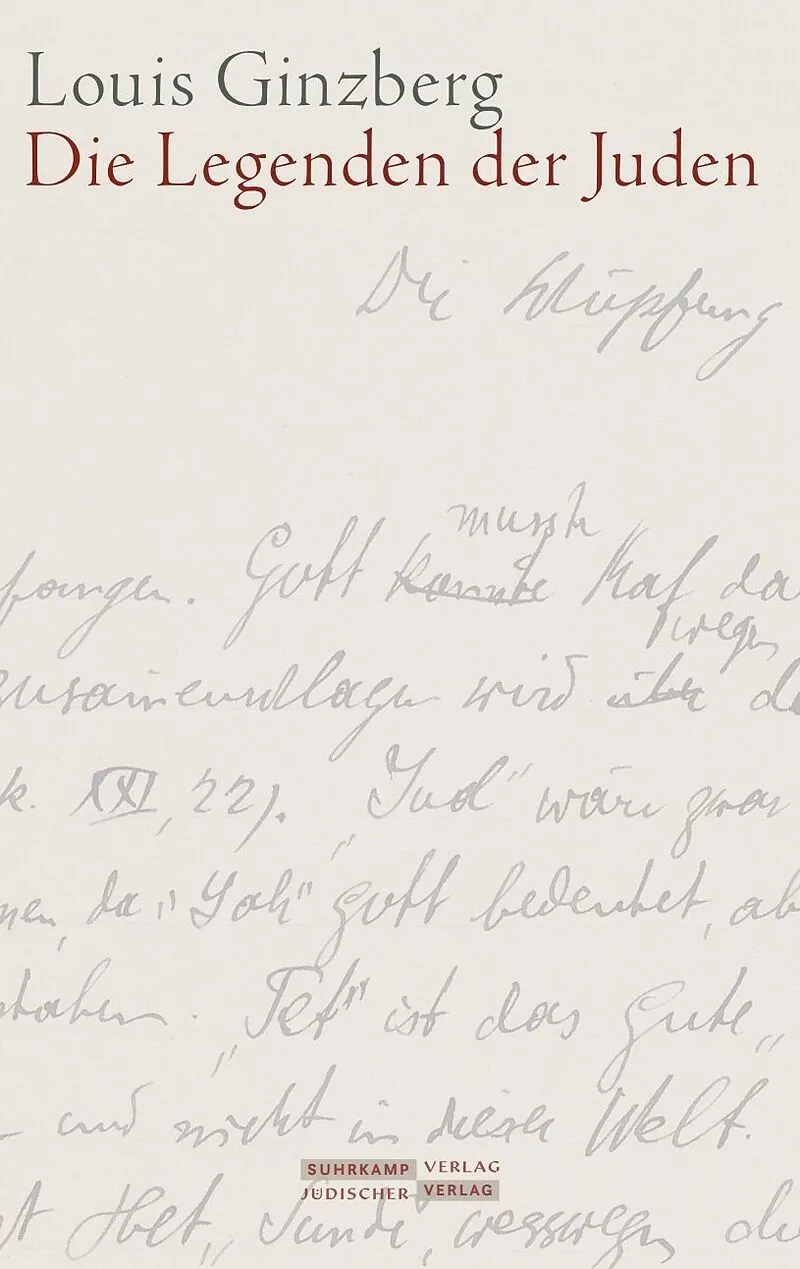 Louis Ginzberg
Die Legenden der Juden
Die Schöpfung
musste
fangen. Gott konnte Kaf da
wegen
zusammenschlagen wird über de
k. XXI, 22). „Jud“ wäre zwar
men, da „Yah“ gott bedeutet, ab
staben. „Tet“ ist das gute„
und nicht in dieser Welt.
SUHRKAMP VERLAG
JÜDISCHER VERLAG
st Het„ Sünde‟, wesswegen du